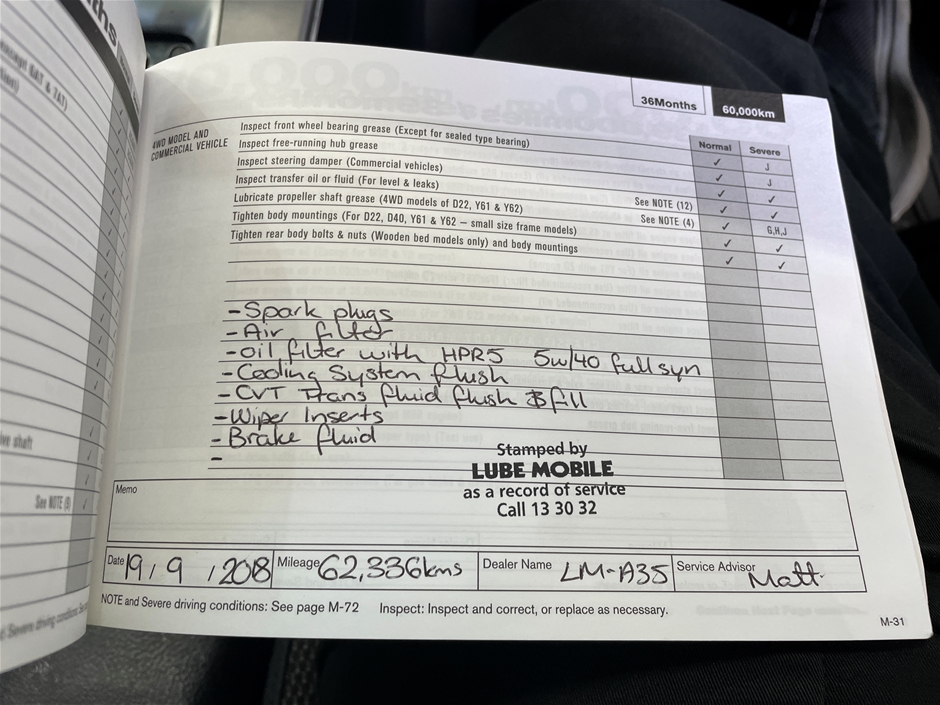 36Months
60,000km
Normal
Severe
4WD MODEL AND
COMMERCIAL VEHICLE
Inspect front wheel bearing grease (Except for sealed type bearing)
✓ J
Inspect free-running hub grease
✓ J
Inspect steering damper (Commercial vehicles)
✓ ✓
Inspect transfer oil or fluid (For level & leaks) See NOTE (12)
✓ ✓
Lubricate propeller shaft grease (4WD models of D22, Y61 & Y62) See NOTE (4)
✓ G,H,J
Tighten body mountings (For D22, D40, Y61 & Y62 – small size frame models)
✓ ✓
Tighten rear body bolts & nuts (Wooden bed models only) and body mountings
✓ ✓
- Spark plugs
- Air filter
- Oil, filter with HPR5 5w/40 full syn
- Cooling System flush
- CVT Trans fluid flush & fill
- Wiper Inserts
- Brake fluid
-
Stamped by
LUBE MOBILE
as a record of service
Call 13 30 32
Memo
Date 19 / 9 / 2018 Mileage 62,336kms Dealer Name LM-A35 Service Advisor Matt
NOTE and Severe driving conditions: See page M-72 Inspect: Inspect and correct, or replace as necessary.
M-31
See NOTE (9)